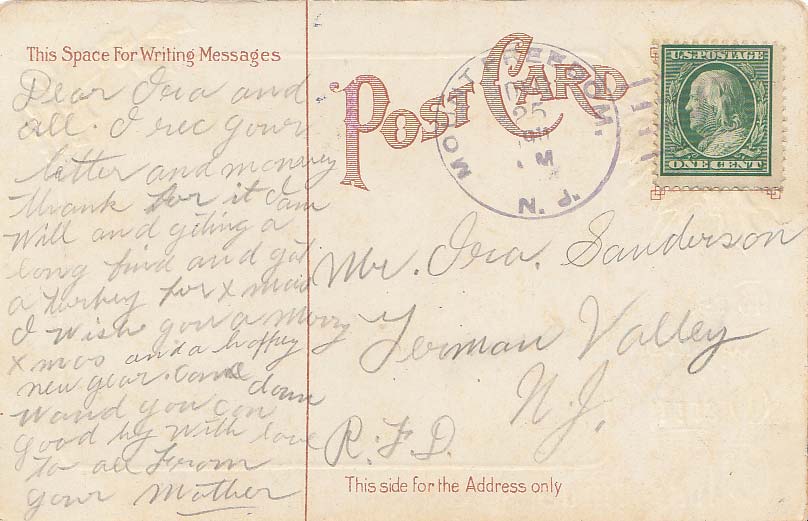 This Space For Writing Messages
Dear Ira and
all. I rec your
letter and monwey
thrank for it I am
Will and giting a
long find and got
a turkey for x mas
I wish you a Merry
x mas and a happy
new year. Come down
wand you can
good by with love
to all From
your Mother
POST CARD
MOUNT FREEDOM,
25
191
M
N.J.
U.S. POSTAGE
ONE CENT
Mr. Ira. Sanderson
German Valley
N.J.
R.F.D.
This side for the Address only